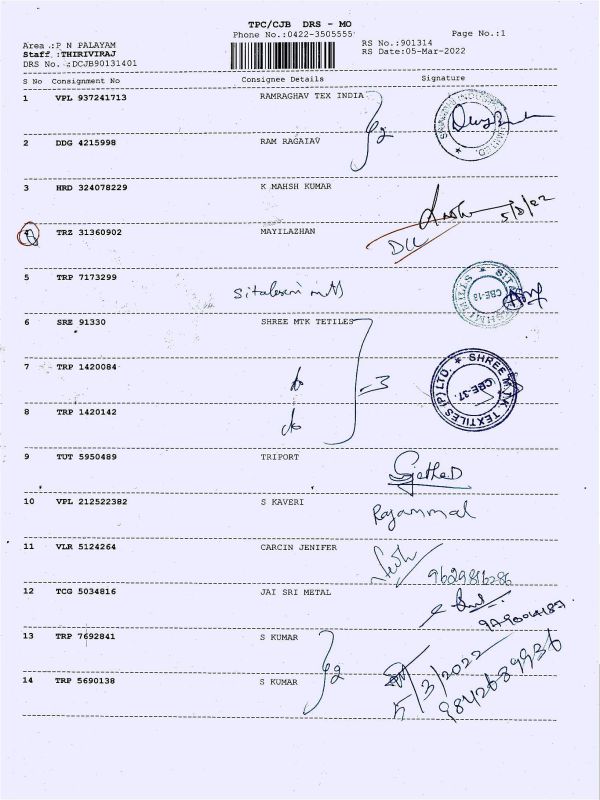 TPC/CJB DRS - MO
Phone No.:0422-3505555
Page No.:1
Area .:P N PALAYAM
RS No.:901314
Staff.:THIRIVIRAJ
RS Date:05-Mar-2022
DRS No. .:DCJB90131401
S No Consignment No Consignee Details Signature
1 VPL 937241713 RAMRAGHAV TEX INDIA
2 DDG 4215998 RAM RAGAIAV
2
3 HRD 324078229 K MAHSH KUMAR
5/3/22
4 TRZ 31360902 MAYILAZHAN
5 TRP 7173299
CBE-18
6 SRE 91330 SHREE MTK TETILES
7 TRP 1420084
3
SHREE M.T.K. TEXTILES (P) LTD.
CBE-37.
8 TRP 1420142
9 TUT 5950489 TRIPORT
10 VPL 212522382 S KAVERI
Rajammal
11 VLR 5124264 CARCIN JENIFER
9629816286
12 TCG 5034816 JAI SRI METAL
13 TRP 7692841 S KUMAR
2
5/3/2022
14 TRP 5690138 S KUMAR
9842689936